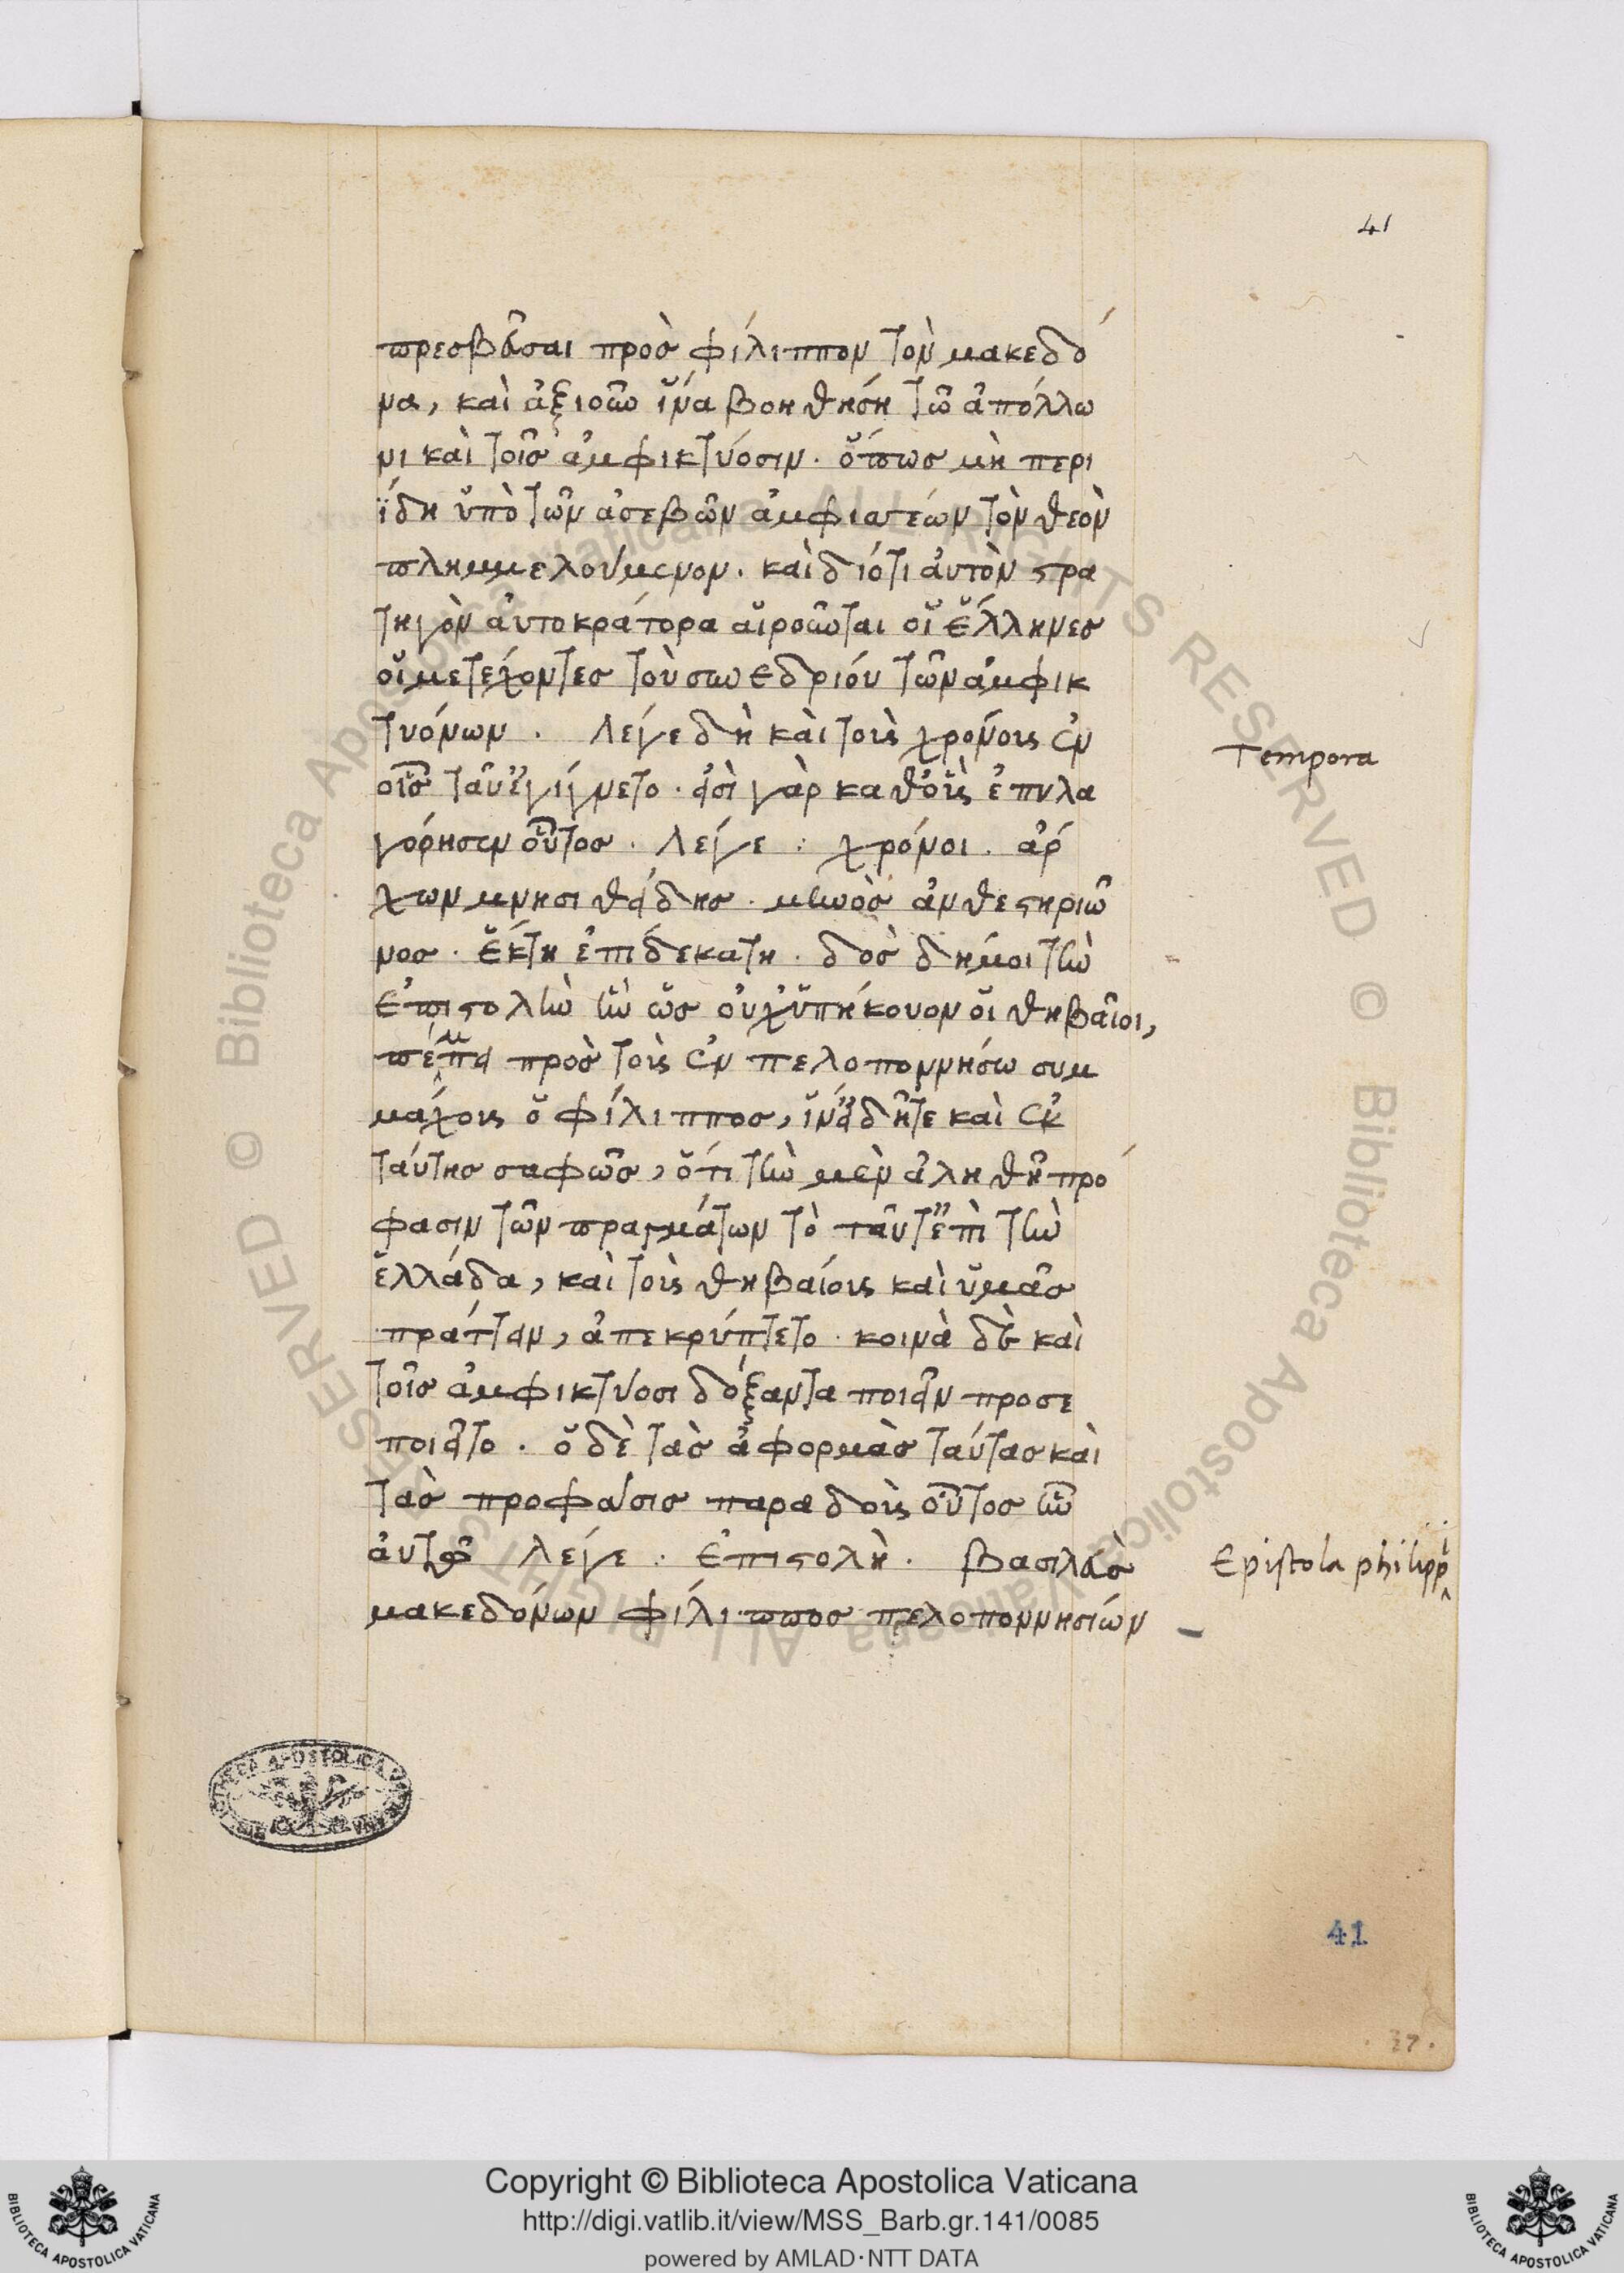 41
πρεσβεῦσαι πρὸς φίλιππον τὸν μακεδό
να, καὶ ἀξιοῦν ἵνα βοηθήση τῶ ἀπόλλω
νι καὶ τοῖς ἀμφικτύοσιν. ὅπως μὴ περι
ΐδη ὑπὸ τῶν ἀσεβῶν ἀμφισσέων τὸν θεὸν
πλημμελούμενον. καὶ διότι ἀυτὸν στρα
τηγὸν ἀυτοκράτορα αἱροῦνται οἱ ἕλληνες
οἱ μετέχοντες τοῦ συνεδρίου τῶν ἀμφικ
τυόνων. Λέγε δὴ καὶ τοὺς χρόνους ἐν
οἷς ταῦτ' ἐγίγνετο. εἰσὶ γὰρ καθ' οὓς ἐπυλα
γόρησεν οὗτος. Λέγε: χρόνοι. ἄρ
χων μνησιθείδης. μηνὸς ἀνθεστηριῶ
νος. ἕκτη ἐπιδεκάτη. δὸς δή μοι τὴν
ἐπιστολὴν ἣν ὡς οὐχ ὑπήκουον οἱ θηβαῖοι,
πέμπει πρὸς τοὺς ἐν πελοποννήσω συμ
μάχους ὁ φίλιππος, ἵν' εἰδῆτε καὶ ἐκ
ταύτης σαφῶς, ὅτι τὴν μὲν ἀληθῆ πρό
φασιν τῶν πραγμάτων τὸ ταῦτ' ἐπὶ τὴν
ἑλλάδα, καὶ τοὺς θηβαίους καὶ ὑμᾶς
πράττειν, ἀπεκρύπτετο. κοινὰ δὲ καὶ
τοῖς ἀμφικτύοσι δόξαντα ποιεῖν προσε
ποιεῖτο. ὁ δὲ τὰς ἀφορμὰς ταύτας καὶ
τὰς προφάσεις παραδοὺς οὗτος ἦν
ἀυτῶ Λέγε. Ἐπιστολὴ. βασιλεὺς
μακεδόνων φίλιππος πελοποννησίων
Tempora
Epistola philippi
41
37.
Copyright © Biblioteca Apostolica Vaticana
http://digi.vatlib.it/view/MSS_Barb.gr.141/0085
powered by AMLAD·NTT DATA